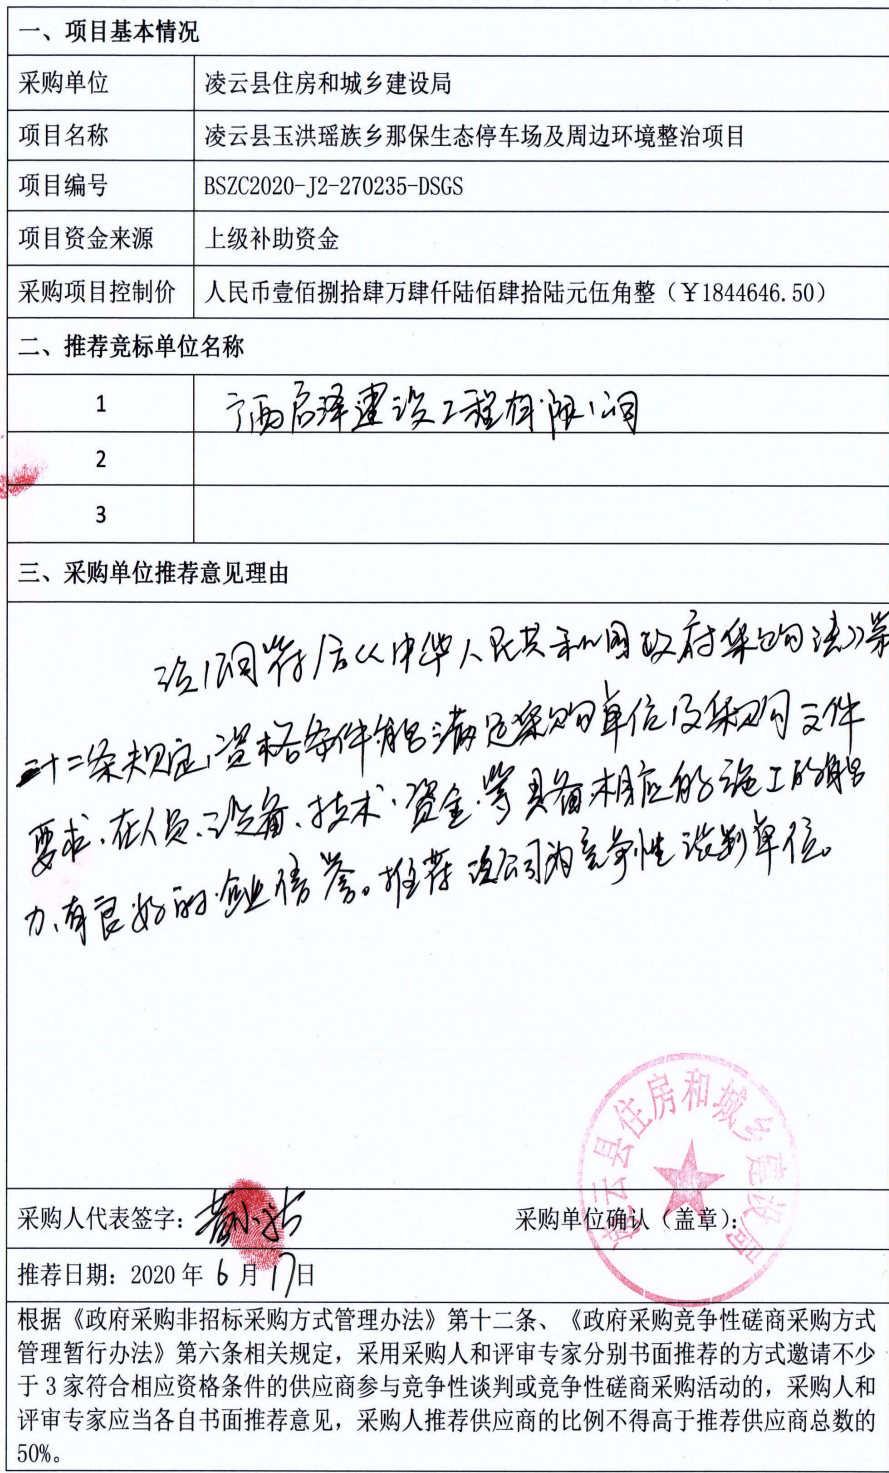 一、项目基本情况
采购单位 凌云县住房和城乡建设局
项目名称 凌云县玉洪瑶族乡那保生态停车场及周边环境整治项目
项目编号 BSZC2020-J2-270235-DSGS
项目资金来源 上级补助资金
采购项目控制价 人民币壹佰捌拾肆万肆仟陆佰肆拾陆元伍角整（￥1844646.50）
二、推荐竞标单位名称
1 广西启泽建设工程有限公司
2
3
三、采购单位推荐意见理由
该公司符合《中华人民共和国政府采购法》第
二十二条规定,资格条件能满足采购单位及采购文件
要求、在人员、设备、技术、资金等具备相应的施工的能
力、有良好的企业信誉。推荐该公司为竞争性谈判单位。
凌云县住房和城乡建设局
采购人代表签字： 采购单位确认（盖章）：
推荐日期：2020年6月17日
根据《政府采购非招标采购方式管理办法》第十二条、《政府采购竞争性磋商采购方式
管理暂行办法》第六条相关规定，采用采购人和评审专家分别书面推荐的方式邀请不少
于3家符合相应资格条件的供应商参与竞争性谈判或竞争性磋商采购活动的，采购人和
评审专家应当各自书面推荐意见，采购人推荐供应商的比例不得高于推荐供应商总数的
50%。